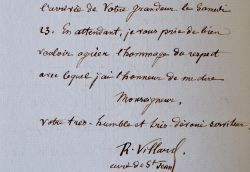 l'arrivée de Votre Grandeur le Samedi
23. En attendant, je vous prie de bien
vouloir agréer l'hommage du respect
avec lequel j'ai l'honneur de me dire
Monseigneur,
votre très-humble et très dévoué serviteur
R. Villard
curé de St Jean